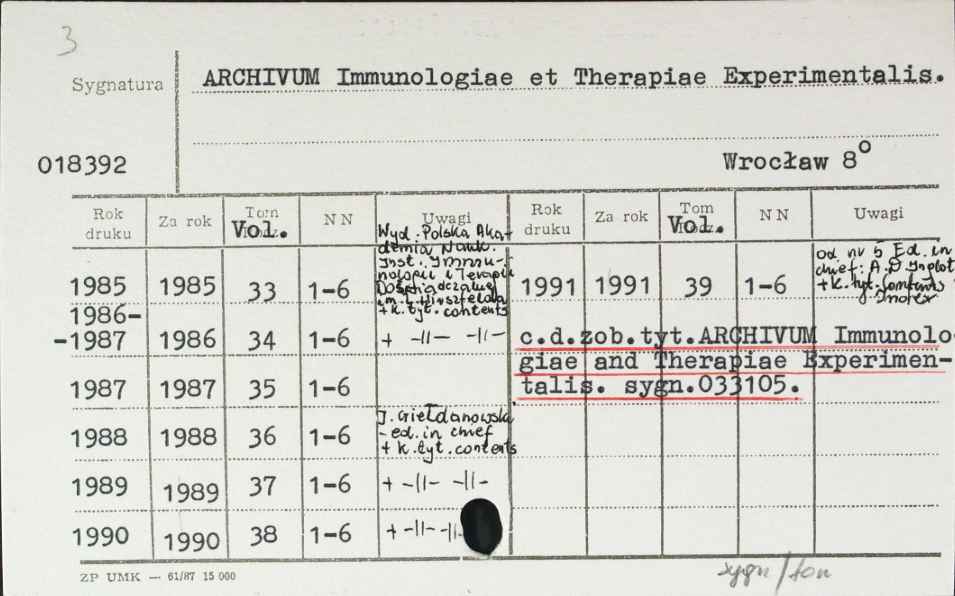 3
Sygnatura
ARCHIVUM Immunologiae et Therapiae Experimentalis.
018392
Wrocław 8°
Rok druku Za rok Tom Vol. NN Uwagi Rok druku Za rok Tom Vol. NN Uwagi
Wyd. Polska Aka-
demia Nauk.
Inst. Immu-
nologii i Terapii
Doświadczalnej
im. L. Hirszfelda
+ k. tyt. contents
1985 1985 33 1-6
od nr 5 Ed. in
chief: A. D. Inglot
+ k. tyt. contents
Index
1991 1991 39 1-6
1986-
-1987 1986 34 1-6 + -||- -||-
c.d.zob.tyt.ARCHIVUM Immunolo-
giae and Therapiae Experimen-
talis. sygn.033105.
1987 1987 35 1-6
J. Giełdanowska
- ed. in chief
+ k. tyt. contents
1988 1988 36 1-6
1989 1989 37 1-6 + -||- -||-
1990 1990 38 1-6 + -||- -||-
ZP UMK — 61/87 15 000
sygn/